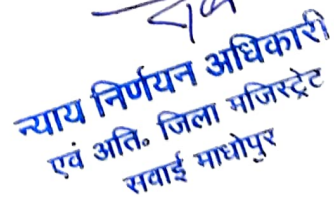 न्याय निर्णयन अधिकारी
एवं अति० जिला मजिस्ट्रेट
सवाई माधोपुर